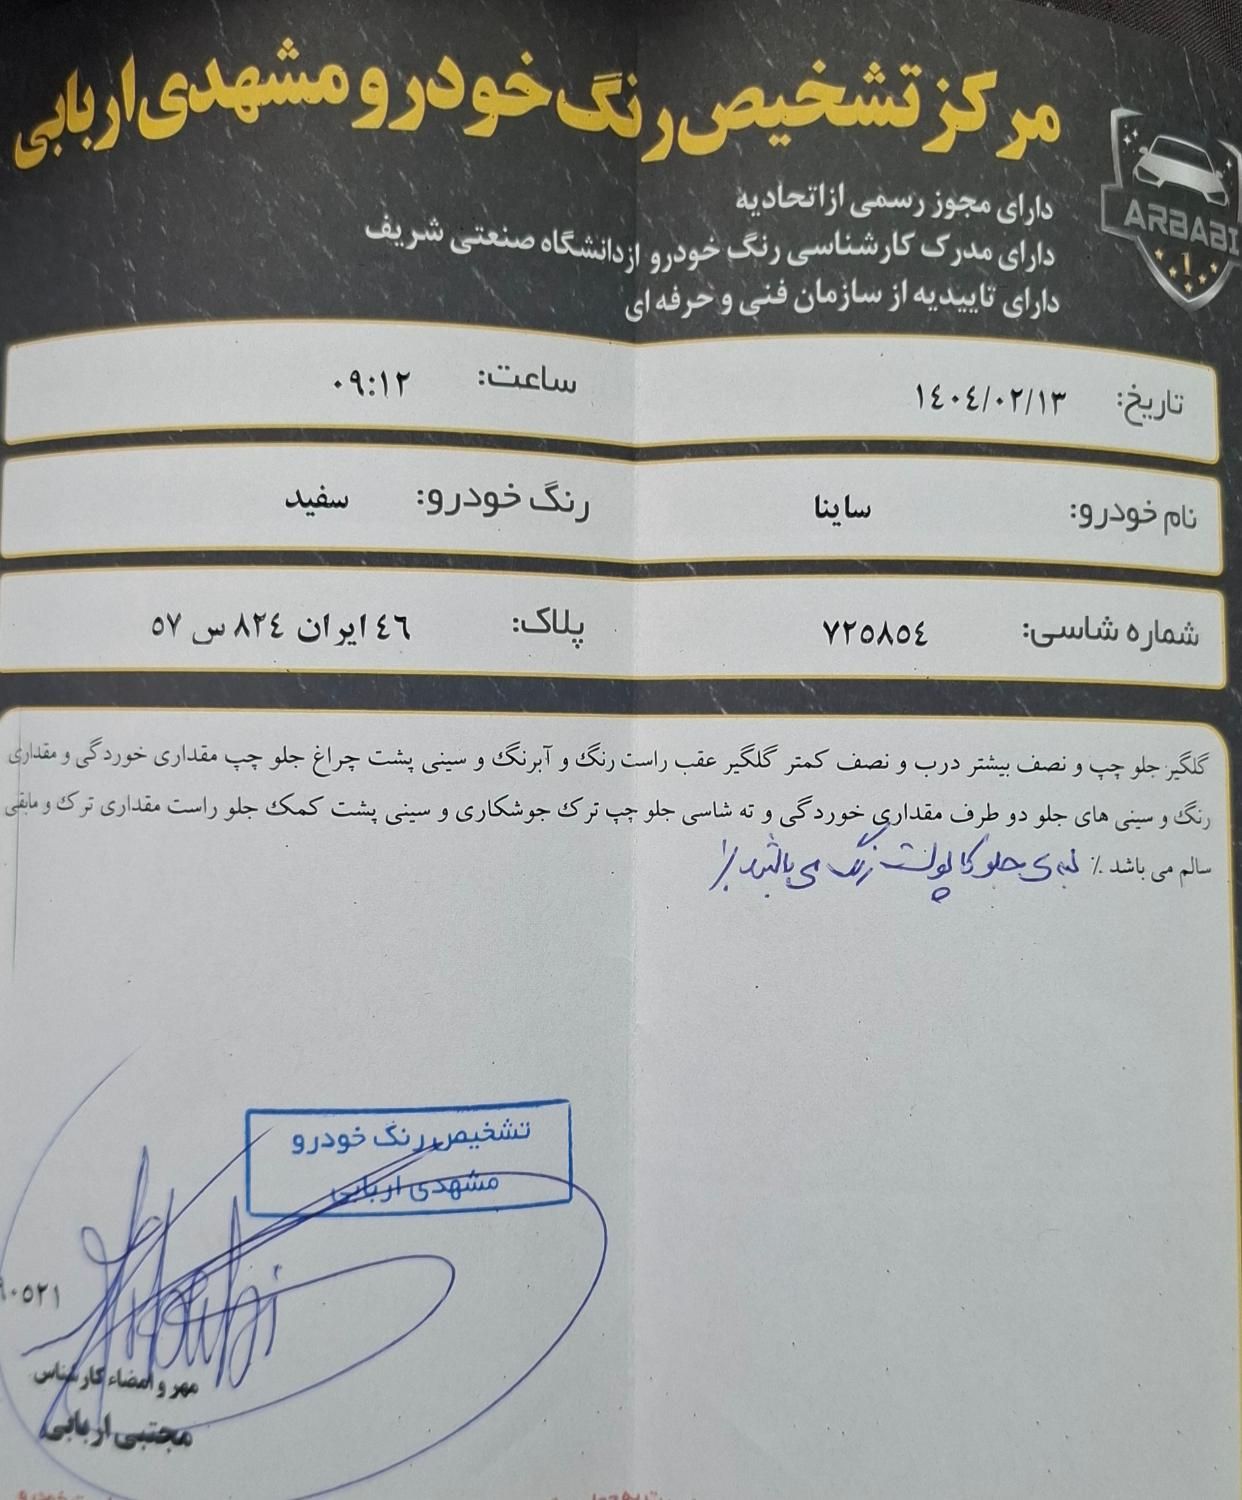 مرکز تشخیص رنگ خودرو مشهدی اربابی
ARBABI
1
دارای مجوز رسمی از اتحادیه
دارای مدرک کارشناسی رنگ خودرو از دانشگاه صنعتی شریف
دارای تاییدیه از سازمان فنی و حرفه ای
تاریخ: ۱٤۰٤/۰۲/۱۳ ساعت: ۰۹:۱۲
نام خودرو: ساینا رنگ خودرو: سفید
شماره شاسی: ۷۲۵۸۵٤ پلاک: ٤٦ ایران ۸۲٤ س ۵۷
گلگیر جلو چپ و نصف بیشتر درب و نصف کمتر گلگیر عقب راست رنگ و آبرنگ و سینی پشت چراغ جلو چپ مقداری خوردگی و مقداری
رنگ و سینی های جلو دو طرف مقداری خوردگی و ته شاسی جلو چپ ترک جوشکاری و سینی پشت کمک جلو راست مقداری ترک و مابقی
سالم می باشد ٪ لبه ی جلو کاپوت رنگ می باشد
تشخیص رنگ خودرو
مشهدی اربابی
۰۵۲۱
مهر و امضاء کارشناس
مجتبی اربابی